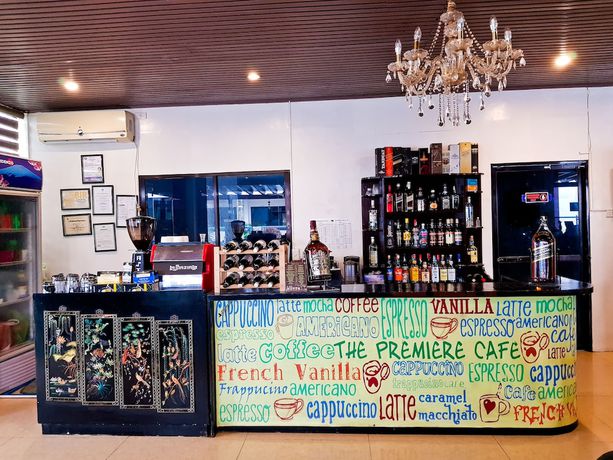 CAPPUCCINO latte mocha COFFEE ESPRESSO VANILLA LATTE mocha
espresso AMERICANO espresso americano
latte Coffee THE PREMIERE CAFE LATTE
French Vanilla CAPPUCCINO ESPRESSO cappucci
Frappucino americano frappuccino Cafe AMERICA
espresso cappuccino LATTE caramel macchiato FRENCH